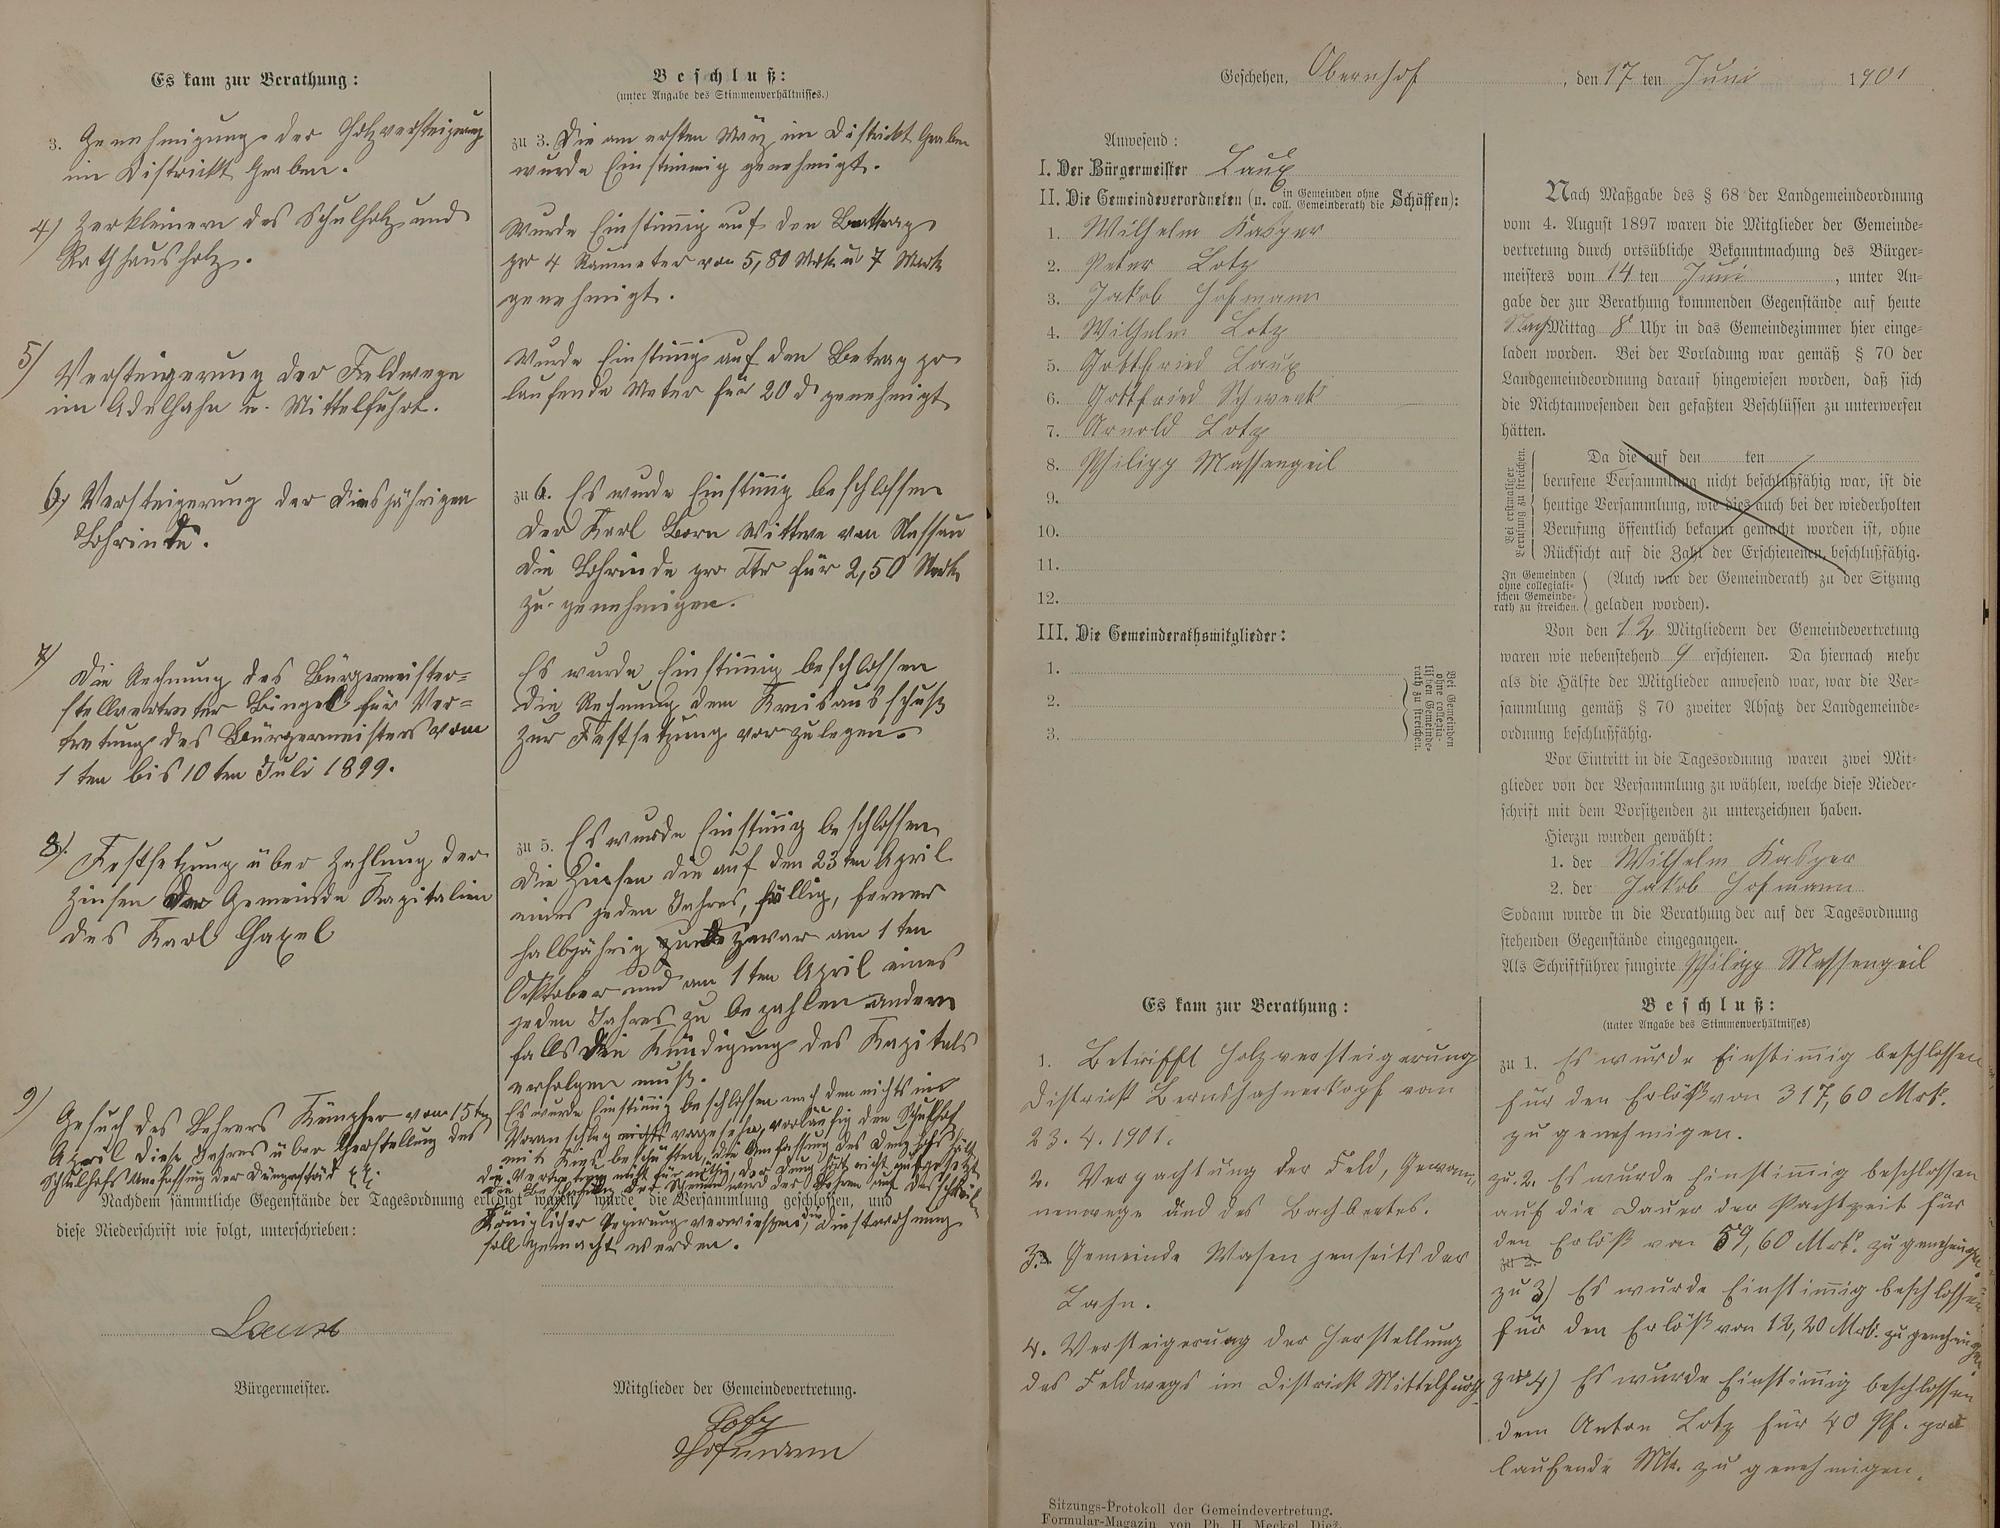 Es kam zur Berathung:
3. Genehmigung der Holzversteigerung
im Districkt Graben.
4) Zerkleinern des Schulholz und
Rathhausholz.
5) Versteigerung der Feldwege
im Adelhahn u. Mittelfuhrt.
6) Versteigerung der diesjährigen
Lohrinde.
7) Die Rechnung des Bürgermeister-
stellvertreter Bingel für Ver-
tretung des Bürgermeisters vom
1ten bis 10ten Juli 1899.
8) Festsetzung über Zahlung der
Zinsen der Gemeinde Kapitalien
des Karl
9) Gesuch des Lehrers Kämpfer vom 15ten
April diese Jahres über Herstellung des
Schulhofs Umfassung der
Beschluß:
(unter Angabe des Stimmenverhältnisses.)
zu 3. Die am ersten März im Districkt Graben
wurde Einstimmig genehmigt.
Wurde Einstimig auf den Bettrag
pro 4 Raumeter von 5,80 Mrk u 7 Mark
genehmigt.
Wurde Einstimig auf den Betrag pr
laufende Meter für 20 d genehmigt
zu 6. Es wurde Einstimig beschlossen
der Karl Born Wittwe von Nassau
die Lohrinde pro Ztr für 2,50 Mark
zu genehmigen.
Es wurde Einstimig beschlossen
die Rechnung dem Kreisausschuß
zur Festsetzung vorzulegen.
zu 5. Es wurde Einstimig beschlossen
die Zinsen die auf den 23ten April
eines jeden Jahres, fällig, ferner
halbjährig zwar am 1ten
Oktober und am 1ten April eines
jeden Jahres zu bezahlen andern
falls die Kündigung des Kapitals
erfolgen muß.
Es wurde Einstimmig beschlossen nach dem nichts im
Voranschlag vorgesehen, vorläufig den Schulhof
mit Kies beschütten, die Umfassung des
der
Königlicher Regierung verwiesen, die
soll gemacht werden.
Nachdem sämmtliche Gegenstände der Tagesordnung erledigt waren, wurde die Versammlung geschlossen, und
diese Niederschrift wie folgt, unterschrieben:
Laux
Bürgermeister.
Mitglieder der Gemeindevertretung.
Lotz
Hofmann
Geschehen, Obernhof, den 17ten Juni 1901
Anwesend:
I. Der Bürgermeister Laux
II. Die Gemeindeverordneten (u. in Gemeinden ohne coll. Gemeinderath die Schöffen):
1. Wilhelm Kasper
2. Peter Lotz
3. Jakob Hofmann
4. Wilhelm Lotz
5. Gottfried Laux
6. Gottfried Schwenk
7. Arnold Lotz
8. Philipp Massengeil
9.
10.
11.
12.
III. Die Gemeinderathsmitglieder:
1.
2.
3.
Bei Gemeinden
ohne collegia-
lischen Gemeinde-
rath zu streichen.
Nach Maßgabe des § 68 der Landgemeindeordnung
vom 4. August 1897 waren die Mitglieder der Gemeinde-
vertretung durch ortsübliche Bekanntmachung des Bürger-
meisters vom 14ten Juni, unter An-
gabe der zur Berathung kommenden Gegenstände auf heute
NachMittag 8 Uhr in das Gemeindezimmer hier einge-
laden worden. Bei der Vorladung war gemäß § 70 der
Landgemeindeordnung darauf hingewiesen worden, daß sich
die Nichtanwesenden den gefaßten Beschlüssen zu unterwerfen
hätten.
Bei erstmaliger
Berufung zu streichen.
Da die auf den ten
berufene Versammlung nicht beschlußfähig war, ist die
heutige Versammlung, wie dies auch bei der wiederholten
Berufung öffentlich bekannt gemacht worden ist, ohne
Rücksicht auf die Zahl der Erschienenen, beschlußfähig.
In Gemeinden
ohne collegiali-
schen Gemeinde-
rath zu streichen.
(Auch war der Gemeinderath zu der Sitzung
geladen worden).
Von den 12 Mitgliedern der Gemeindevertretung
waren wie nebenstehend 9 erschienen. Da hiernach mehr
als die Hälfte der Mitglieder anwesend war, war die Ver-
sammlung gemäß § 70 zweiter Absatz der Landgemeinde-
ordnung beschlußfähig.
Vor Eintritt in die Tagesordnung waren zwei Mit-
glieder von der Versammlung zu wählen, welche diese Nieder-
schrift mit dem Vorsitzenden zu unterzeichnen haben.
Hierzu wurden gewählt:
1. der Wilhelm Kasper
2. der Jakob Hofmann
Sodann wurde in die Berathung der auf der Tagesordnung
stehenden Gegenstände eingegangen.
Als Schriftführer fungirte Philipp Massengeil
Es kam zur Berathung:
1. Betrifft Holzversteigerung
District Bernshahnerkopf vom
23.4.1901.
2. Verpachtung der Feld, Gewann,
nenwege und des Bachbeetes.
3. Gemeinde Wasen jenseits der
Lahn.
4. Versteigerung der Herstellung
des Feldwegs im District Mittelfurth
Beschluß:
(unter Angabe des Stimmenverhältnisses)
zu 1. Es wurde Einstimig beschlossen
für den Erlöß von 317,60 Mrk.
zu genehmigen.
zu 2. Es wurde Einstimig beschlossen
auf die Dauer der Pachtzeit für
den Erlöß von 59,60 Mrk. zu genehmigen.
zu 2.
zu 3) Es wurde Einstimig beschlossen
für den Erlöß von 12,20 Mrk. zu genehmigen
zu 4) Es wurde Einstimig beschlossen
dem Anton Lotz für 40 Pf. pro
laufende Mtr. zu genehmigen.
Sitzungs-Protokoll der Gemeindevertretung.
Formular-Magazin von Ph. H. Meckel, Diez.